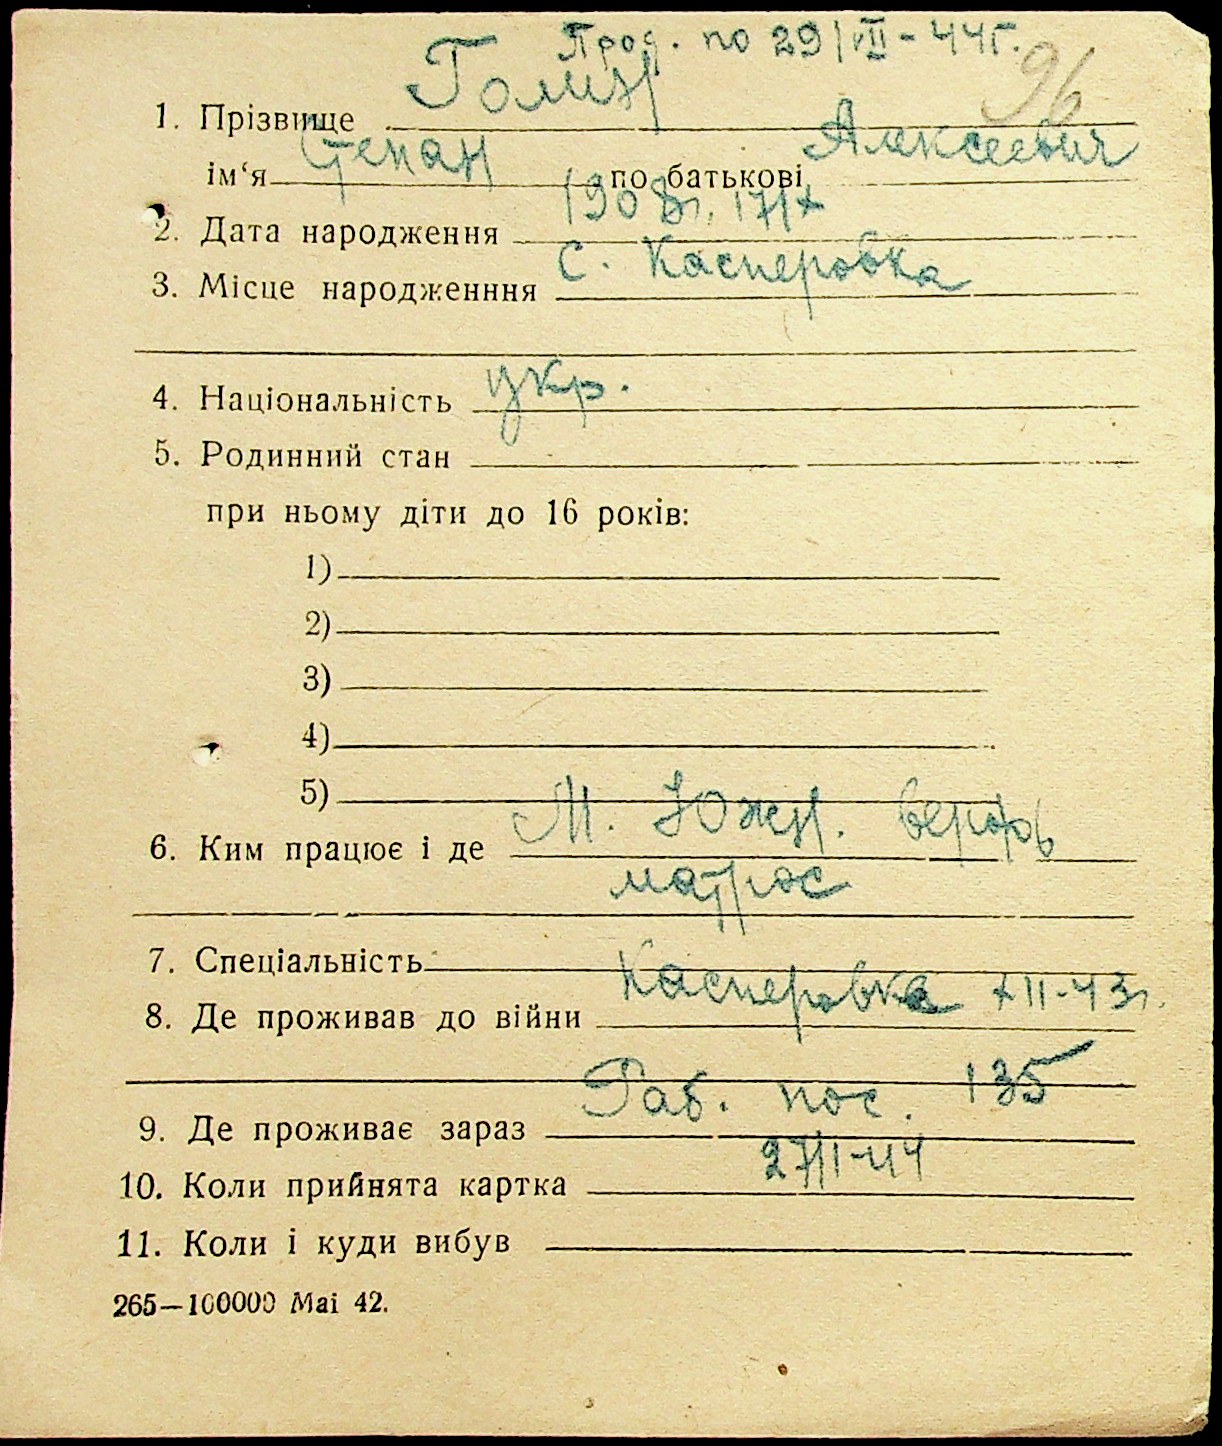 Прод. по 29/VII - 44г.
96
1. Прізвище Голин
ім‘я Степан по батькові Алексеевич
2. Дата народження 1908г. 17/X
3. Місце народженння с. Касперовка
4. Національність укр.
5. Родинний стан
при ньому діти до 16 років:
1)
2)
3)
4)
5)
6. Ким працює і де М. Южн. верфь
матрос
7. Спеціальність
8. Де проживав до війни Касперовка XII-43г.
9. Де проживає зараз Раб. пос. 135
10. Коли прийнята картка 27/I-44
11. Коли і куди вибув
265—100000 Mai 42.